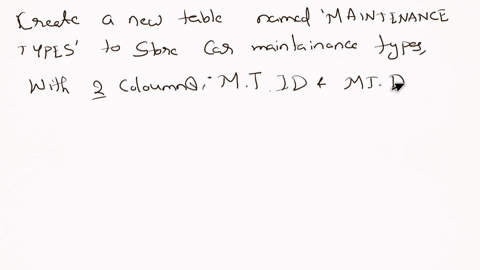 Create a new table named 'MAINTINANCE
TYPES' to Store Car maintainance types,
With 2 Coloumns, M.T ID & MT. D